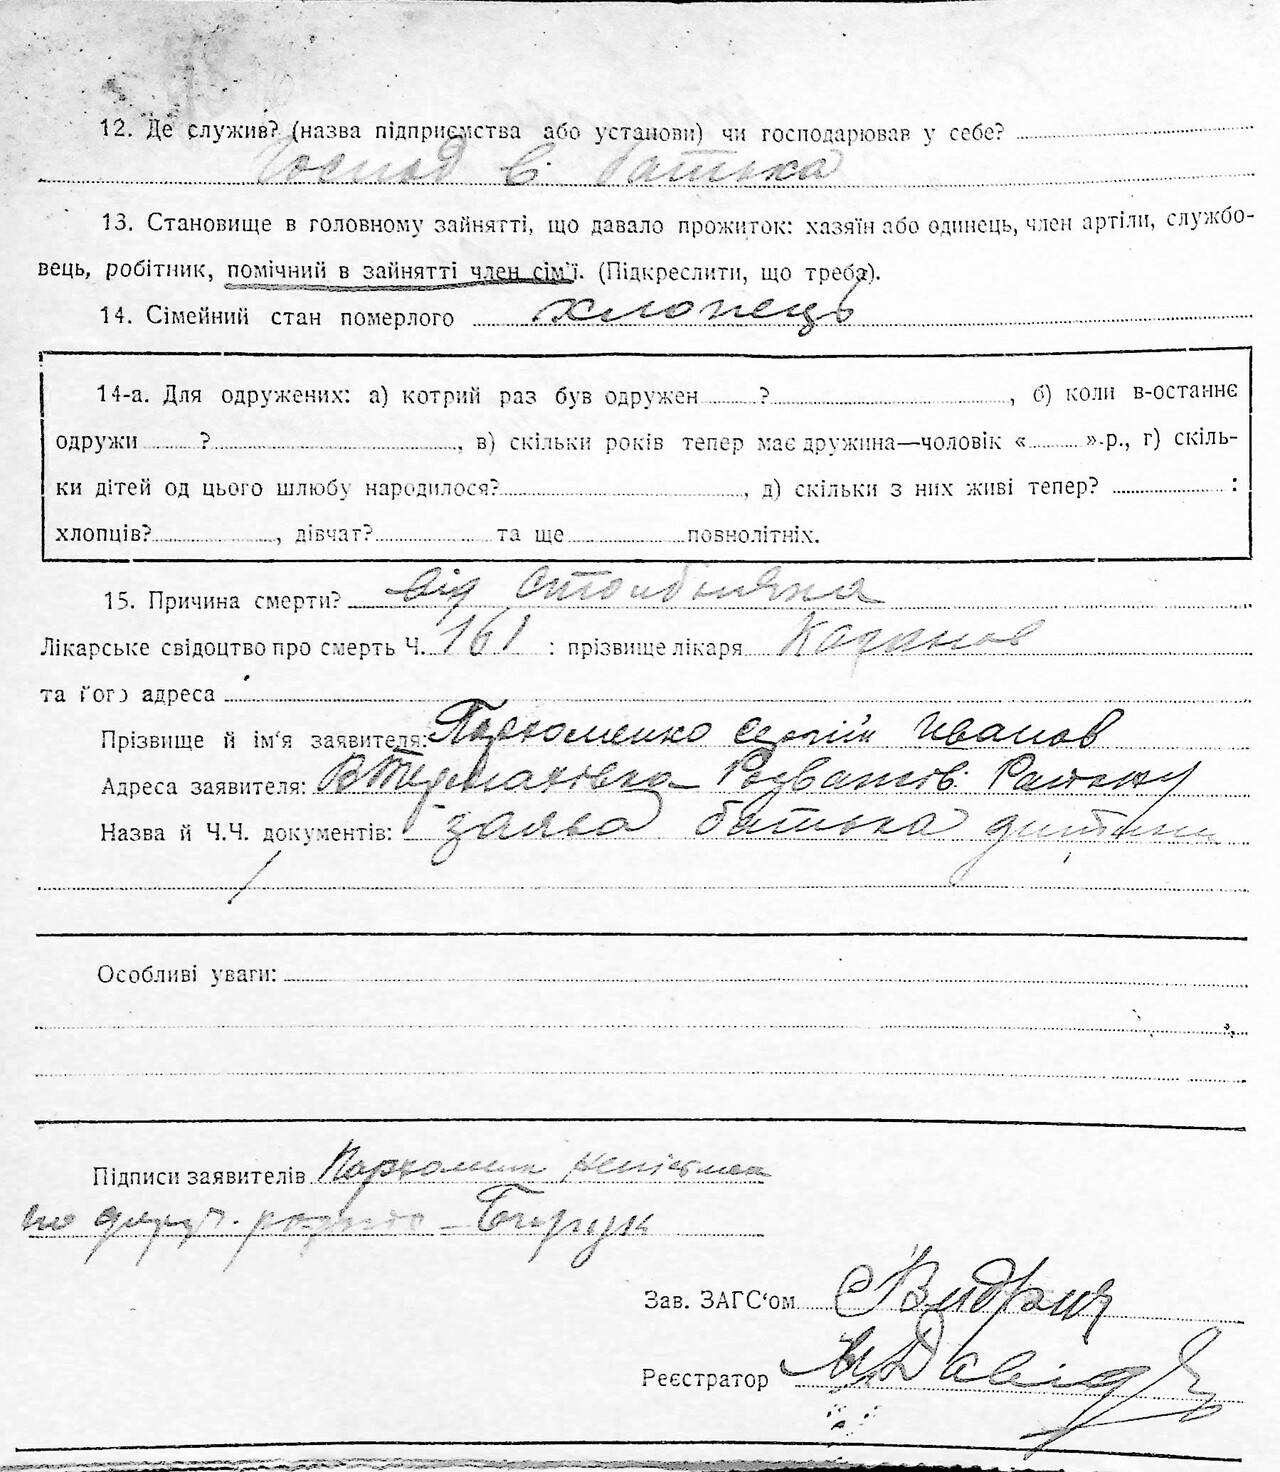 12. Де служив? (назва підприємства або установи) чи господарював у себе?
Господ в батька
13. Становище в головному зайнятті, що давало прожиток: хазяїн або одинець, член артіли, службо-
вець, робітник, помічний в зайнятті член сім'ї. (Підкреслити, що треба).
14. Сімейний стан померлого хлопець
14-а. Для одружених: а) котрий раз був одружен ? , б) коли в-останнє
одружи ? , в) скільки років тепер має дружина—чоловік « » р., г) скіль-
ки дітей од цього шлюбу народилося? , д) скільки з них живі тепер? :
хлопців? , дівчат? та ще повнолітніх.
15. Причина смерти? від
Лікарське свідоцтво про смерть Ч. 161 : прізвище лікаря
та його адреса
Прізвище й ім'я заявителя: Пархоменко Сергій Иванов
Адреса заявителя: Розважів. Району
Назва й Ч.Ч. документів: заява батька дитини
Особливі уваги:
Підписи заявителів
Зав. ЗАГС'ом
Реєстратор